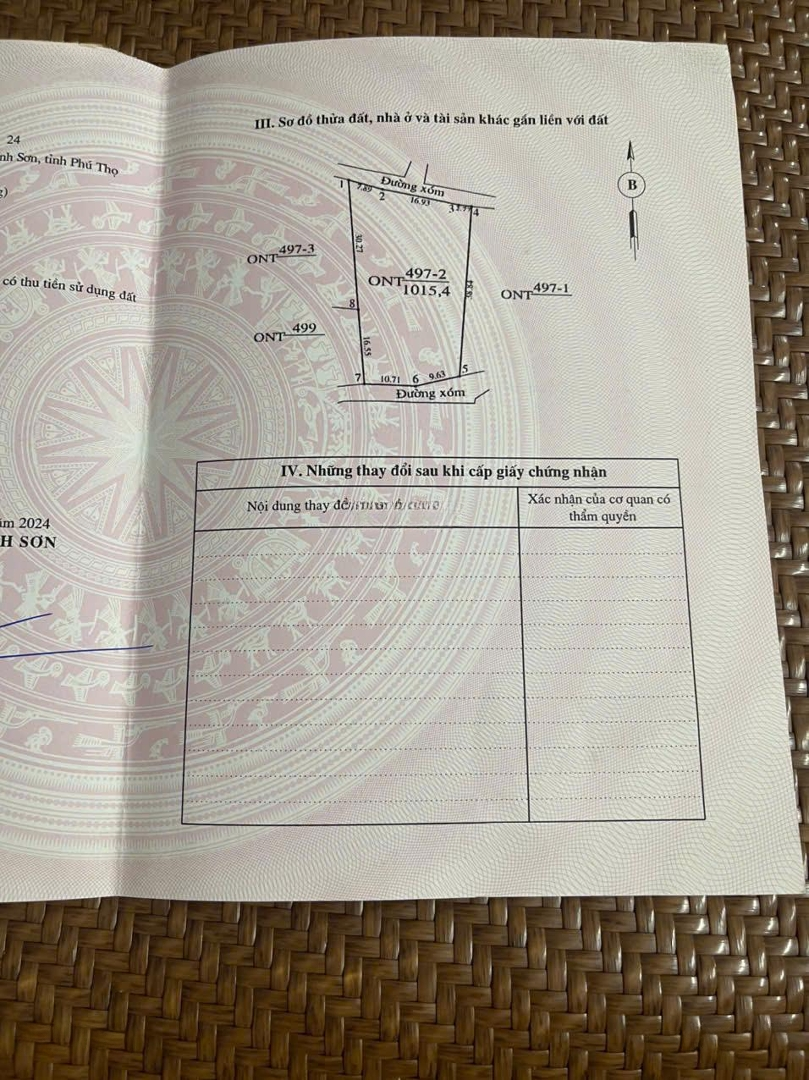 24
nh Sơn, tỉnh Phú Thọ
g)
có thu tiền sử dụng đất
ăm 2024
H SƠN
III. Sơ đồ thửa đất, nhà ở và tài sản khác gắn liền với đất
B
Đường xóm
1
7.89
2
16.93
3
4
ONT 497-3
30.27
ONT 497-2
1015,4
ONT 497-1
8
ONT 499
16.55
7
10.71
6
9.63
5
Đường xóm
IV. Những thay đổi sau khi cấp giấy chứng nhận
Nội dung thay
Xác nhận của cơ quan có
thẩm quyền